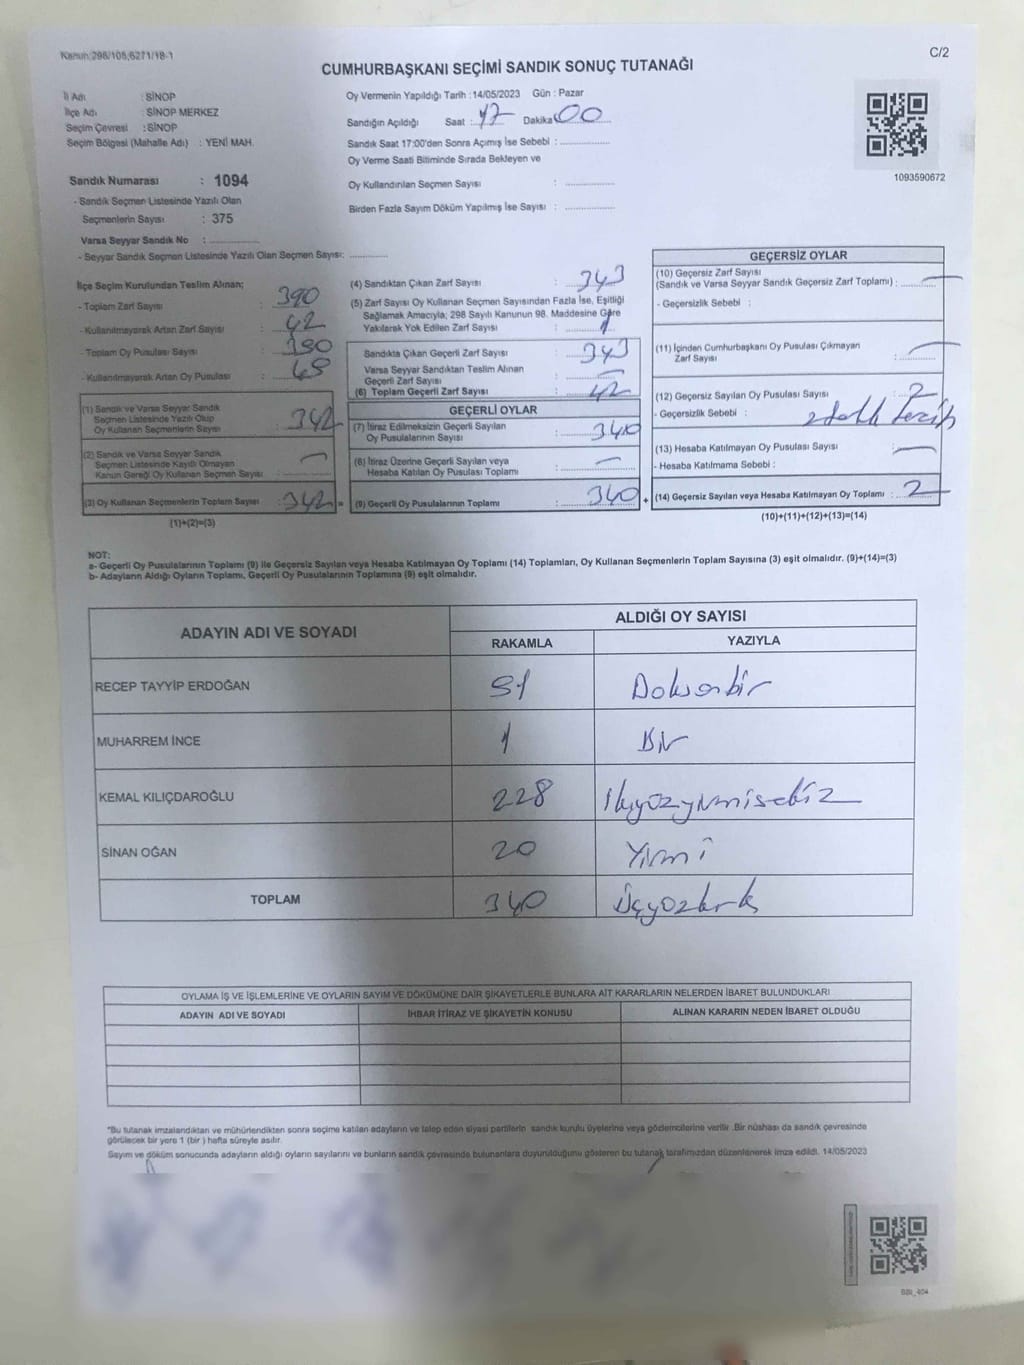 Kanun:298/105,6271/18-1
C/2
CUMHURBAŞKANI SEÇİMİ SANDIK SONUÇ TUTANAĞI
İl Adı : SİNOP
İlçe Adı : SİNOP MERKEZ
Seçim Çevresi : SİNOP
Seçim Bölgesi (Mahalle Adı) : YENİ MAH.
Sandık Numarası : 1094
- Sandık Seçmen Listesinde Yazılı Olan
Seçmenlerin Sayısı : 375
Varsa Seyyar Sandık No : ..............
- Seyyar Sandık Seçmen Listesinde Yazılı Olan Seçmen Sayısı: ............
Oy Vermenin Yapıldığı Tarih :14/05/2023 Gün : Pazar
Sandığın Açıldığı Saat : 17 Dakika 00
Sandık Saat 17:00'den Sonra Açımış İse Sebebi : ..............
Oy Verme Saati Bitiminde Sırada Bekleyen ve
Oy Kullandırılan Seçmen Sayısı : ..............
Birden Fazla Sayım Döküm Yapılmış İse Sayısı : ..............
1093590672
İlçe Seçim Kurulundan Teslim Alınan;
- Toplam Zarf Sayısı : 390
- Kullanılmayarak Artan Zarf Sayısı : 42
- Toplam Oy Pusulası Sayısı : 390
- Kullanılmayarak Artan Oy Pusulası : 48
(1) Sandık ve Varsa Seyyar Sandık
Seçmen Listesinde Yazılı Olup
Oy Kullanan Seçmenlerin Sayısı : 342
(2) Sandık ve Varsa Seyyar Sandık
Seçmen Listesinde Kayıtlı Olmayan
Kanun Gereği Oy Kullanan Seçmen Sayısı : —
(3) Oy Kullanan Seçmenlerin Toplam Sayısı : 342 =
(1)+(2)=(3)
(4) Sandıktan Çıkan Zarf Sayısı : 343
(5) Zarf Sayısı Oy Kullanan Seçmen Sayısından Fazla İse, Eşitliği
Sağlamak Amacıyla; 298 Sayılı Kanunun 98. Maddesine Göre
Yakılarak Yok Edilen Zarf Sayısı : 1
Sandıkta Çıkan Geçerli Zarf Sayısı : 343
Varsa Seyyar Sandıktan Teslim Alınan
Geçerli Zarf Sayısı : —
(6) Toplam Geçerli Zarf Sayısı : 42
GEÇERLİ OYLAR
(7) İtiraz Edilmeksizin Geçerli Sayılan
Oy Pusulalarının Sayısı : 340
(8) İtiraz Üzerine Geçerli Sayılan veya
Hesaba Katılan Oy Pusulası Toplamı : —
(9) Geçerli Oy Pusulalarının Toplamı : 340 +
GEÇERSİZ OYLAR
(10) Geçersiz Zarf Sayısı
(Sandık ve Varsa Seyyar Sandık Geçersiz Zarf Toplamı) : —
- Geçersizlik Sebebi :
(11) İçinden Cumhurbaşkanı Oy Pusulası Çıkmayan
Zarf Sayısı : —
(12) Geçersiz Sayılan Oy Pusulası Sayısı : 2
- Geçersizlik Sebebi : tercih
(13) Hesaba Katılmayan Oy Pusulası Sayısı : —
- Hesaba Katılmama Sebebi :
(14) Geçersiz Sayılan veya Hesaba Katılmayan Oy Toplamı : 2
(10)+(11)+(12)+(13)=(14)
NOT:
a- Geçerli Oy Pusulalarının Toplamı (9) ile Geçersiz Sayılan veya Hesaba Katılmayan Oy Toplamı (14) Toplamları, Oy Kullanan Seçmenlerin Toplam Sayısına (3) eşit olmalıdır. (9)+(14)=(3)
b- Adayların Aldığı Oyların Toplamı, Geçerli Oy Pusulalarının Toplamına (9) eşit olmalıdır.
ADAYIN ADI VE SOYADI ALDIĞI OY SAYISI
RAKAMLA YAZIYLA
RECEP TAYYİP ERDOĞAN 91 Doksanbir
MUHARREM İNCE 1 Bir
KEMAL KILIÇDAROĞLU 228 İkiyüzyirmisekiz
SİNAN OĞAN 20 Yirmi
TOPLAM 340 Üçyüzkırk
OYLAMA İŞ VE İŞLEMLERİNE VE OYLARIN SAYIM VE DÖKÜMÜNE DAİR ŞİKAYETLERLE BUNLARA AİT KARARLARIN NELERDEN İBARET BULUNDUKLARI
ADAYIN ADI VE SOYADI İHBAR İTİRAZ VE ŞİKAYETİN KONUSU ALINAN KARARIN NEDEN İBARET OLDUĞU
*Bu tutanak imzalandıktan ve mühürlendikten sonra seçime katılan adayların ve talep eden siyasi partilerin sandık kurulu üyelerine veya gözlemcilerine verilir .Bir nüshası da sandık çevresinde
görülecek bir yere 1 (bir ) hafta süreyle asılır.
Sayım ve döküm sonucunda adayların aldığı oyların sayılarını ve bunların sandık çevresinde bulunanlara duyurulduğunu gösteren bu tutanak tarafımızdan düzenlenerek imza edildi. 14/05/2023